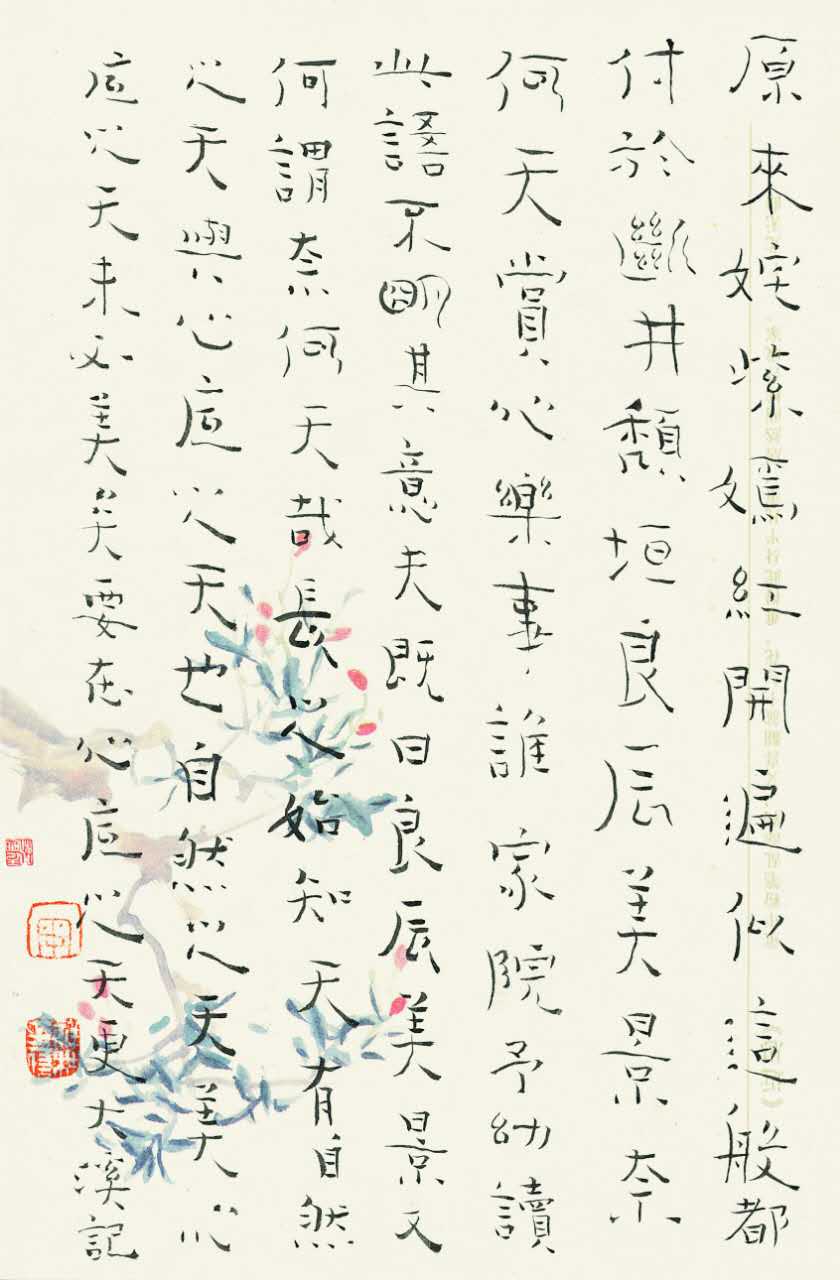 原來姹紫嫣紅開遍似這般都
付於斷井頽垣良辰美景奈
何天賞心樂事誰家院予幼讀
此語不朙其意夫既曰良辰美景又
何謂奈何天哉長之始知天有自然
之天與心底之天也自然之天美心
底之天未必美矣要在心底之天更大溪記